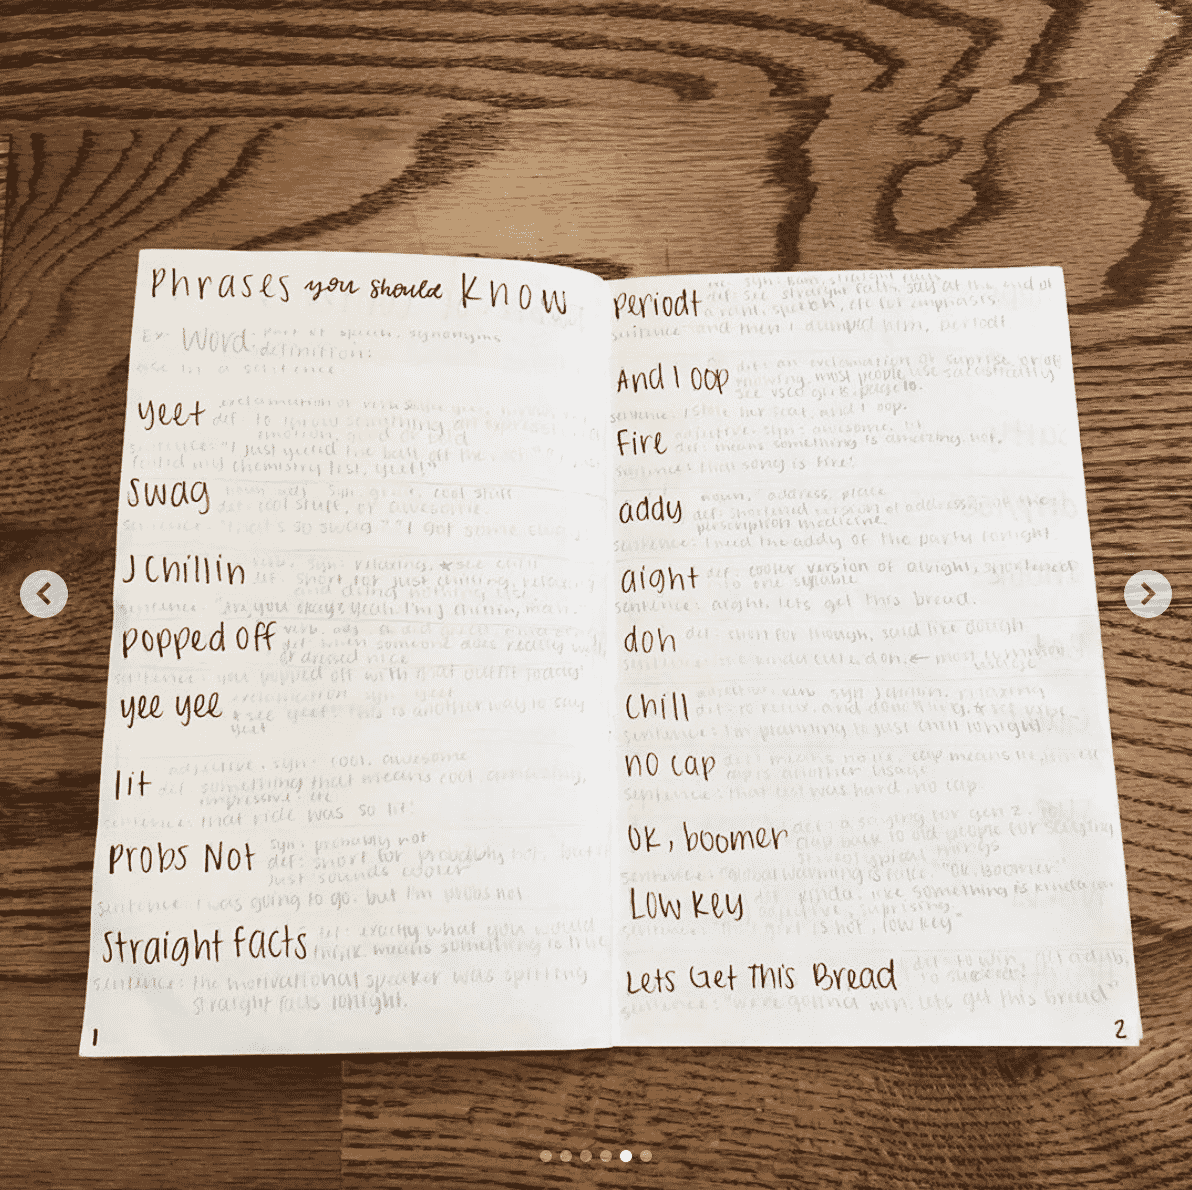 Phrases you should Know
Ex: Word. Part of speech, synonyms
definition:
use in a sentence:
yeet
def to throw something, an
emotion, good or bad
sentence: "I just yeeted the ball off the
failed my chemistry test, yeet!"
swag noun, adj. syn: cool stuff
def: cool stuff, or awesome.
sentence: "that's so swag" "I got some swag
J Chillin verb, syn: relaxing, *see chill
def: short for just chilling, relaxing
and doing nothing
sentence: "Are you okay? yeah I'm j chillin, man."
popped off verb, adj.
def: when someone does really well,
or dressed nice
sentence: you popped off with that outfit today
yee yee exclamation syn: yeet
*see yeet: this is another way to say
yeet
lit adjective, syn: cool, awesome
def something that means cool amazing,
impressive, etc
sentence: that ride was so lit!
Probs Not syn: probably not
def: short for probably not, but
just sounds cooler
sentence: I was going to go, but I'm probs not
Straight facts def: exactly what you would
think, means something is true
sentence: the motivational speaker was spitting
straight facts tonight.
1
syn: straight facts
Periodt def: see straight facts, say at the end of
a rant, speech, etc for emphasis
sentence: and then I dumped him, periodt
And I oop def: an exclamation of suprise or of
knowing. most people use sarcastically
see vsco girls, page 10.
sentence: I stole her seat, and I oop.
Fire adjective, syn: awesome, lit
def: means something is amazing, hot.
sentence: that song is fire!
addy noun, address, place
def: shortened version of address,
perscription medicine
sentence: I need the addy of the party tonight
aight def: cooler version of alright, shortened
into one syllable
sentence: aight, lets get this bread.
doh def: short for though, said like dough
sentence: he kinda cute doh. ← most common
usage
Chill adjective, verb syn: J chillin, relaxing
def: to relax, and do nothing. *see
sentence: I'm planning to just chill tonight
no cap def: means no lie, cap means lie,
cap is another usage
sentence: that test was hard, no cap
OK, boomer def: a saying for gen z. to
clap back to old people for saying
stereotypical things
sentence: "global warming is fake." "OK, boomer."
Low key def: kinda, like something is kinda
adjective, suprising.
sentence: girl is hot, low key"
Lets Get This Bread def: to win,
to succeed!
sentence: "we're gonna win, lets get this bread"
2